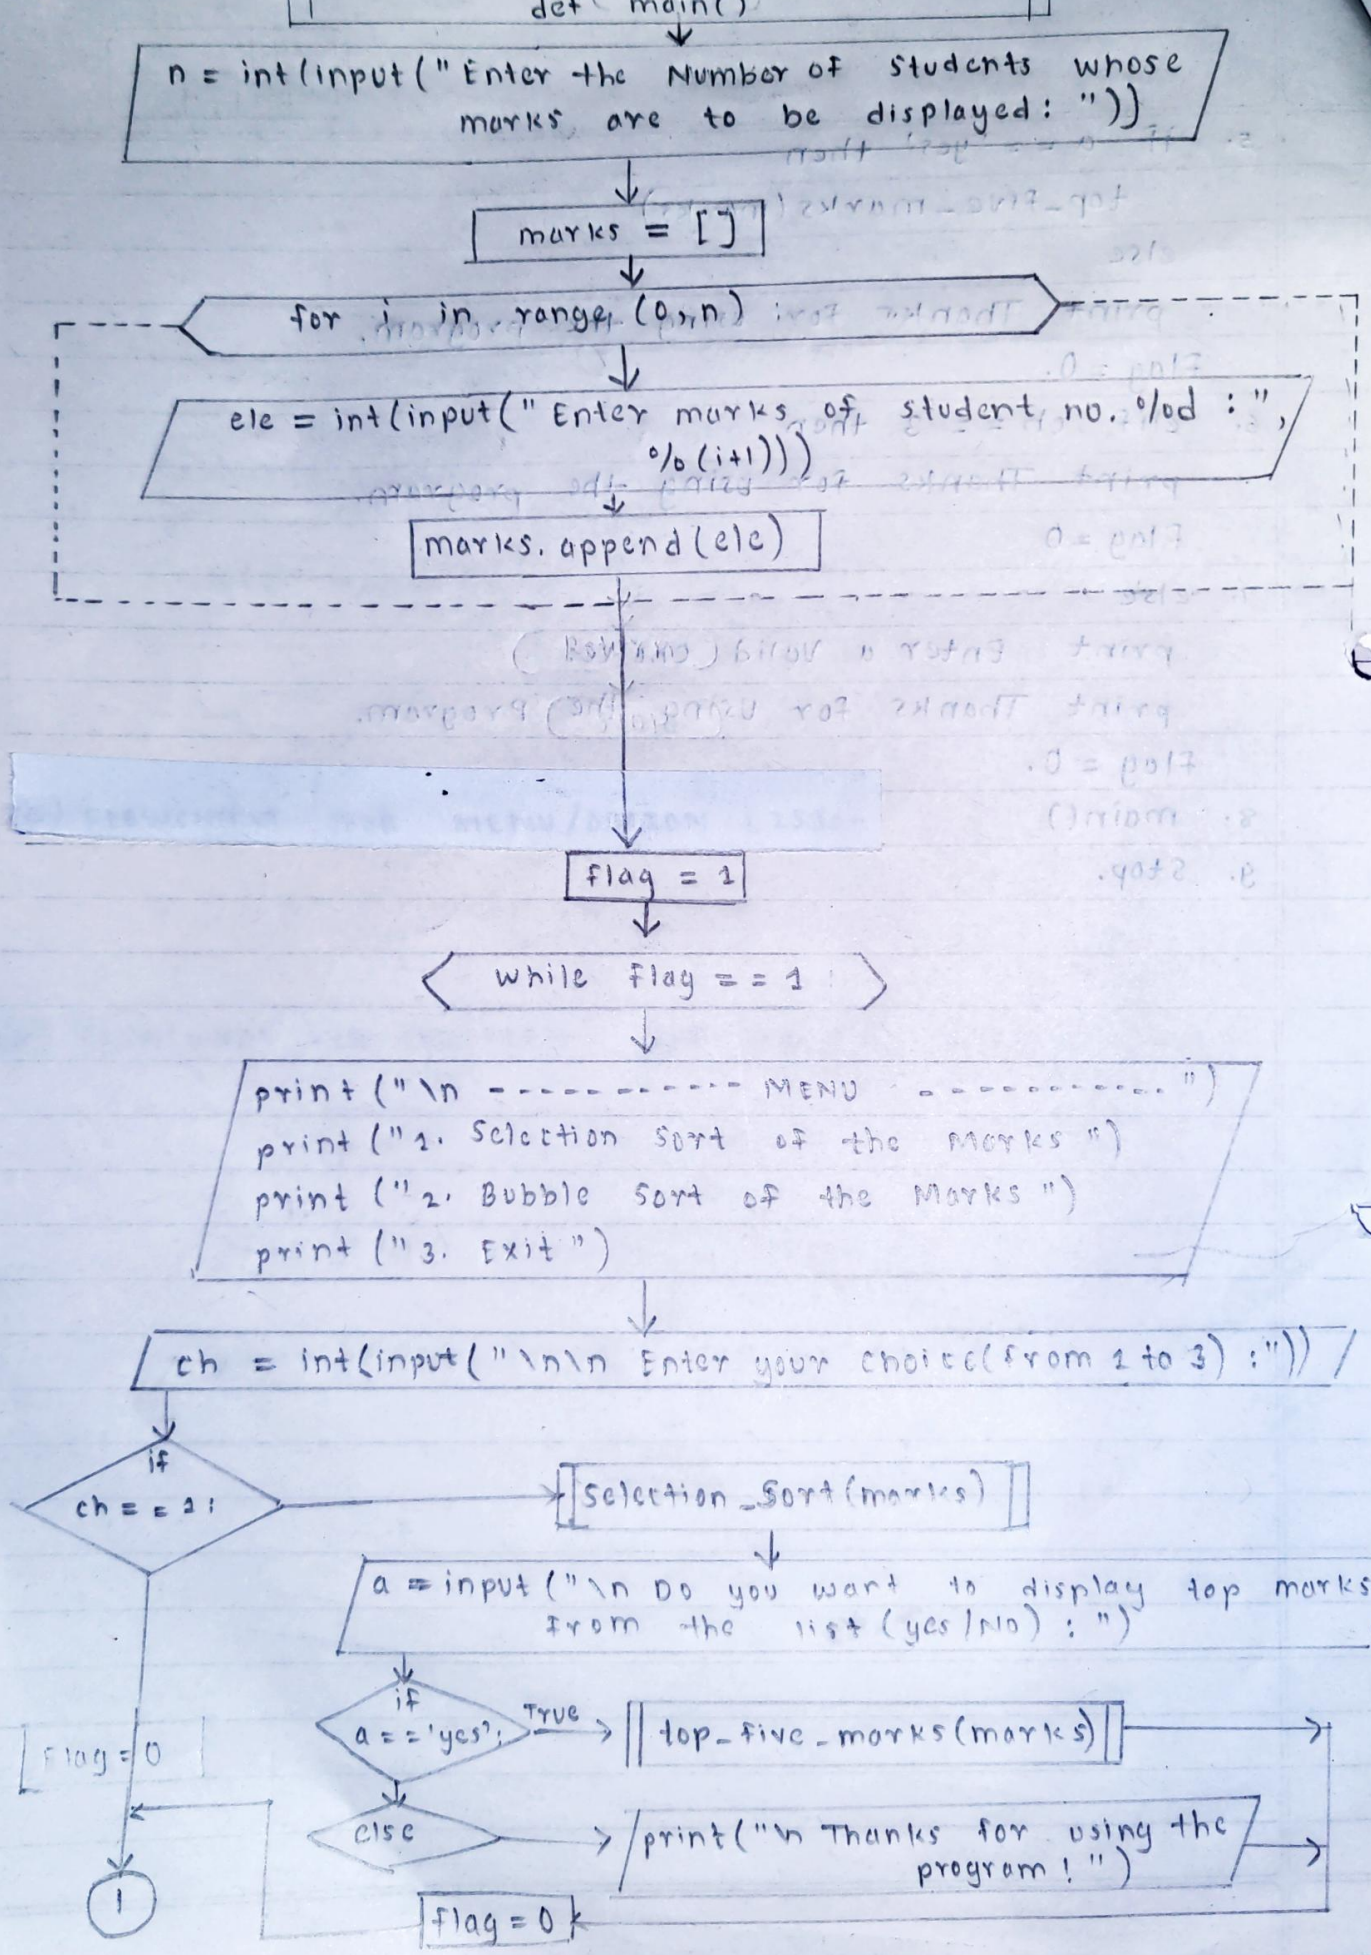 def main()
n = int(input("Enter the Number of students whose
marks are to be displayed: "))
marks = []
for i in range (0,n) :
ele = int(input("Enter marks of student no. %d :",
%(i+1)))
marks.append(ele)
flag = 1
while flag == 1 :
print ("\n ----------- MENU ----------- ")
print ("1. Selection Sort of the Marks ")
print ("2. Bubble Sort of the Marks ")
print ("3. Exit ")
ch = int(input("\n\n Enter your choice(from 1 to 3) :"))
if
ch == 1:
Selection_Sort(marks)
a = input ("\n Do you want to display top marks
from the list (yes/No) : ")
if
a == 'yes':
True
top_five_marks(marks)
Flag = 0
else
print("\n Thanks for using the
program ! ")
1
flag = 0